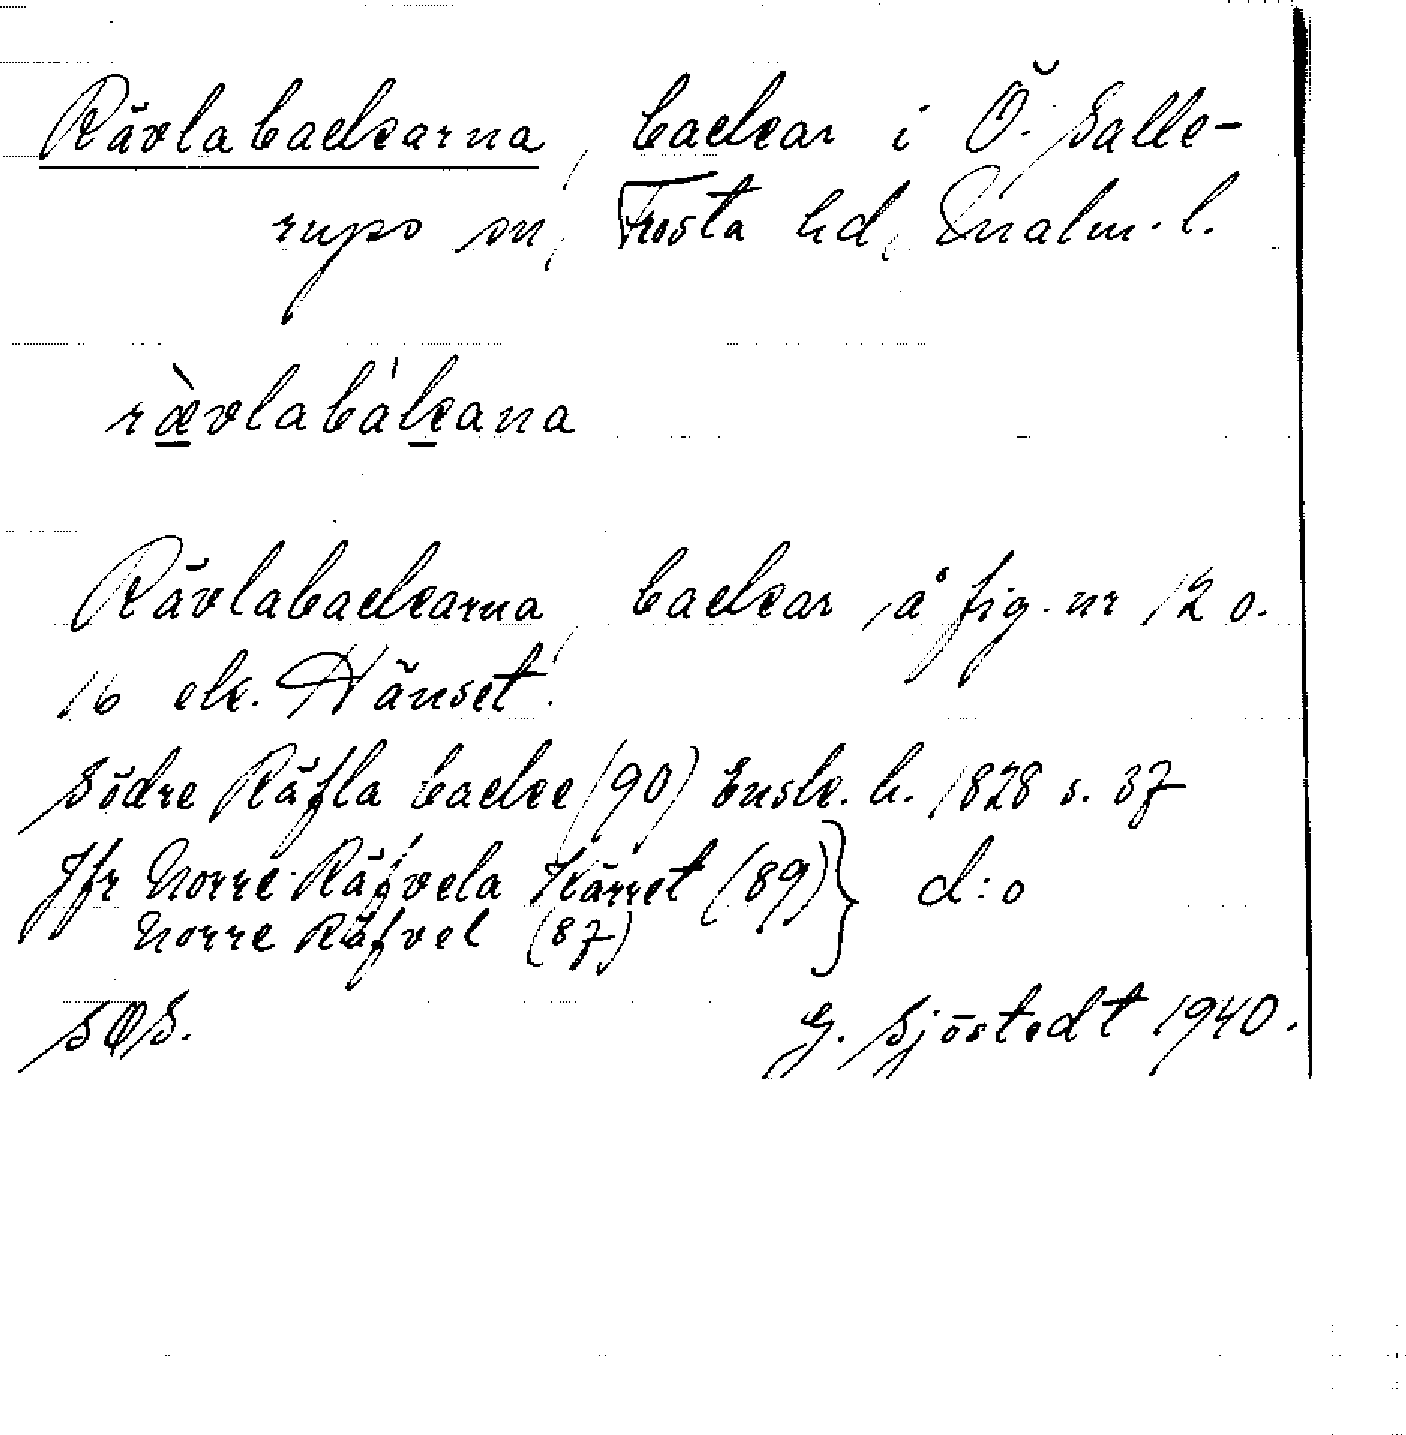 Rävlabackarna, backar i Ö. Salle-
rups sn, Frosta hd, Malm. l.
rævlabàkana
Rävlabackarna, backar å fig. nr 12 o.
16 ek. Hänset.
Södre Räfla backe (90) Ensk. h. 1828 s. 37
Jfr Norre Räfvela Kärret (89) } d:o
Norre Räfvel (87)
SOS. G. Sjöstedt 1940.